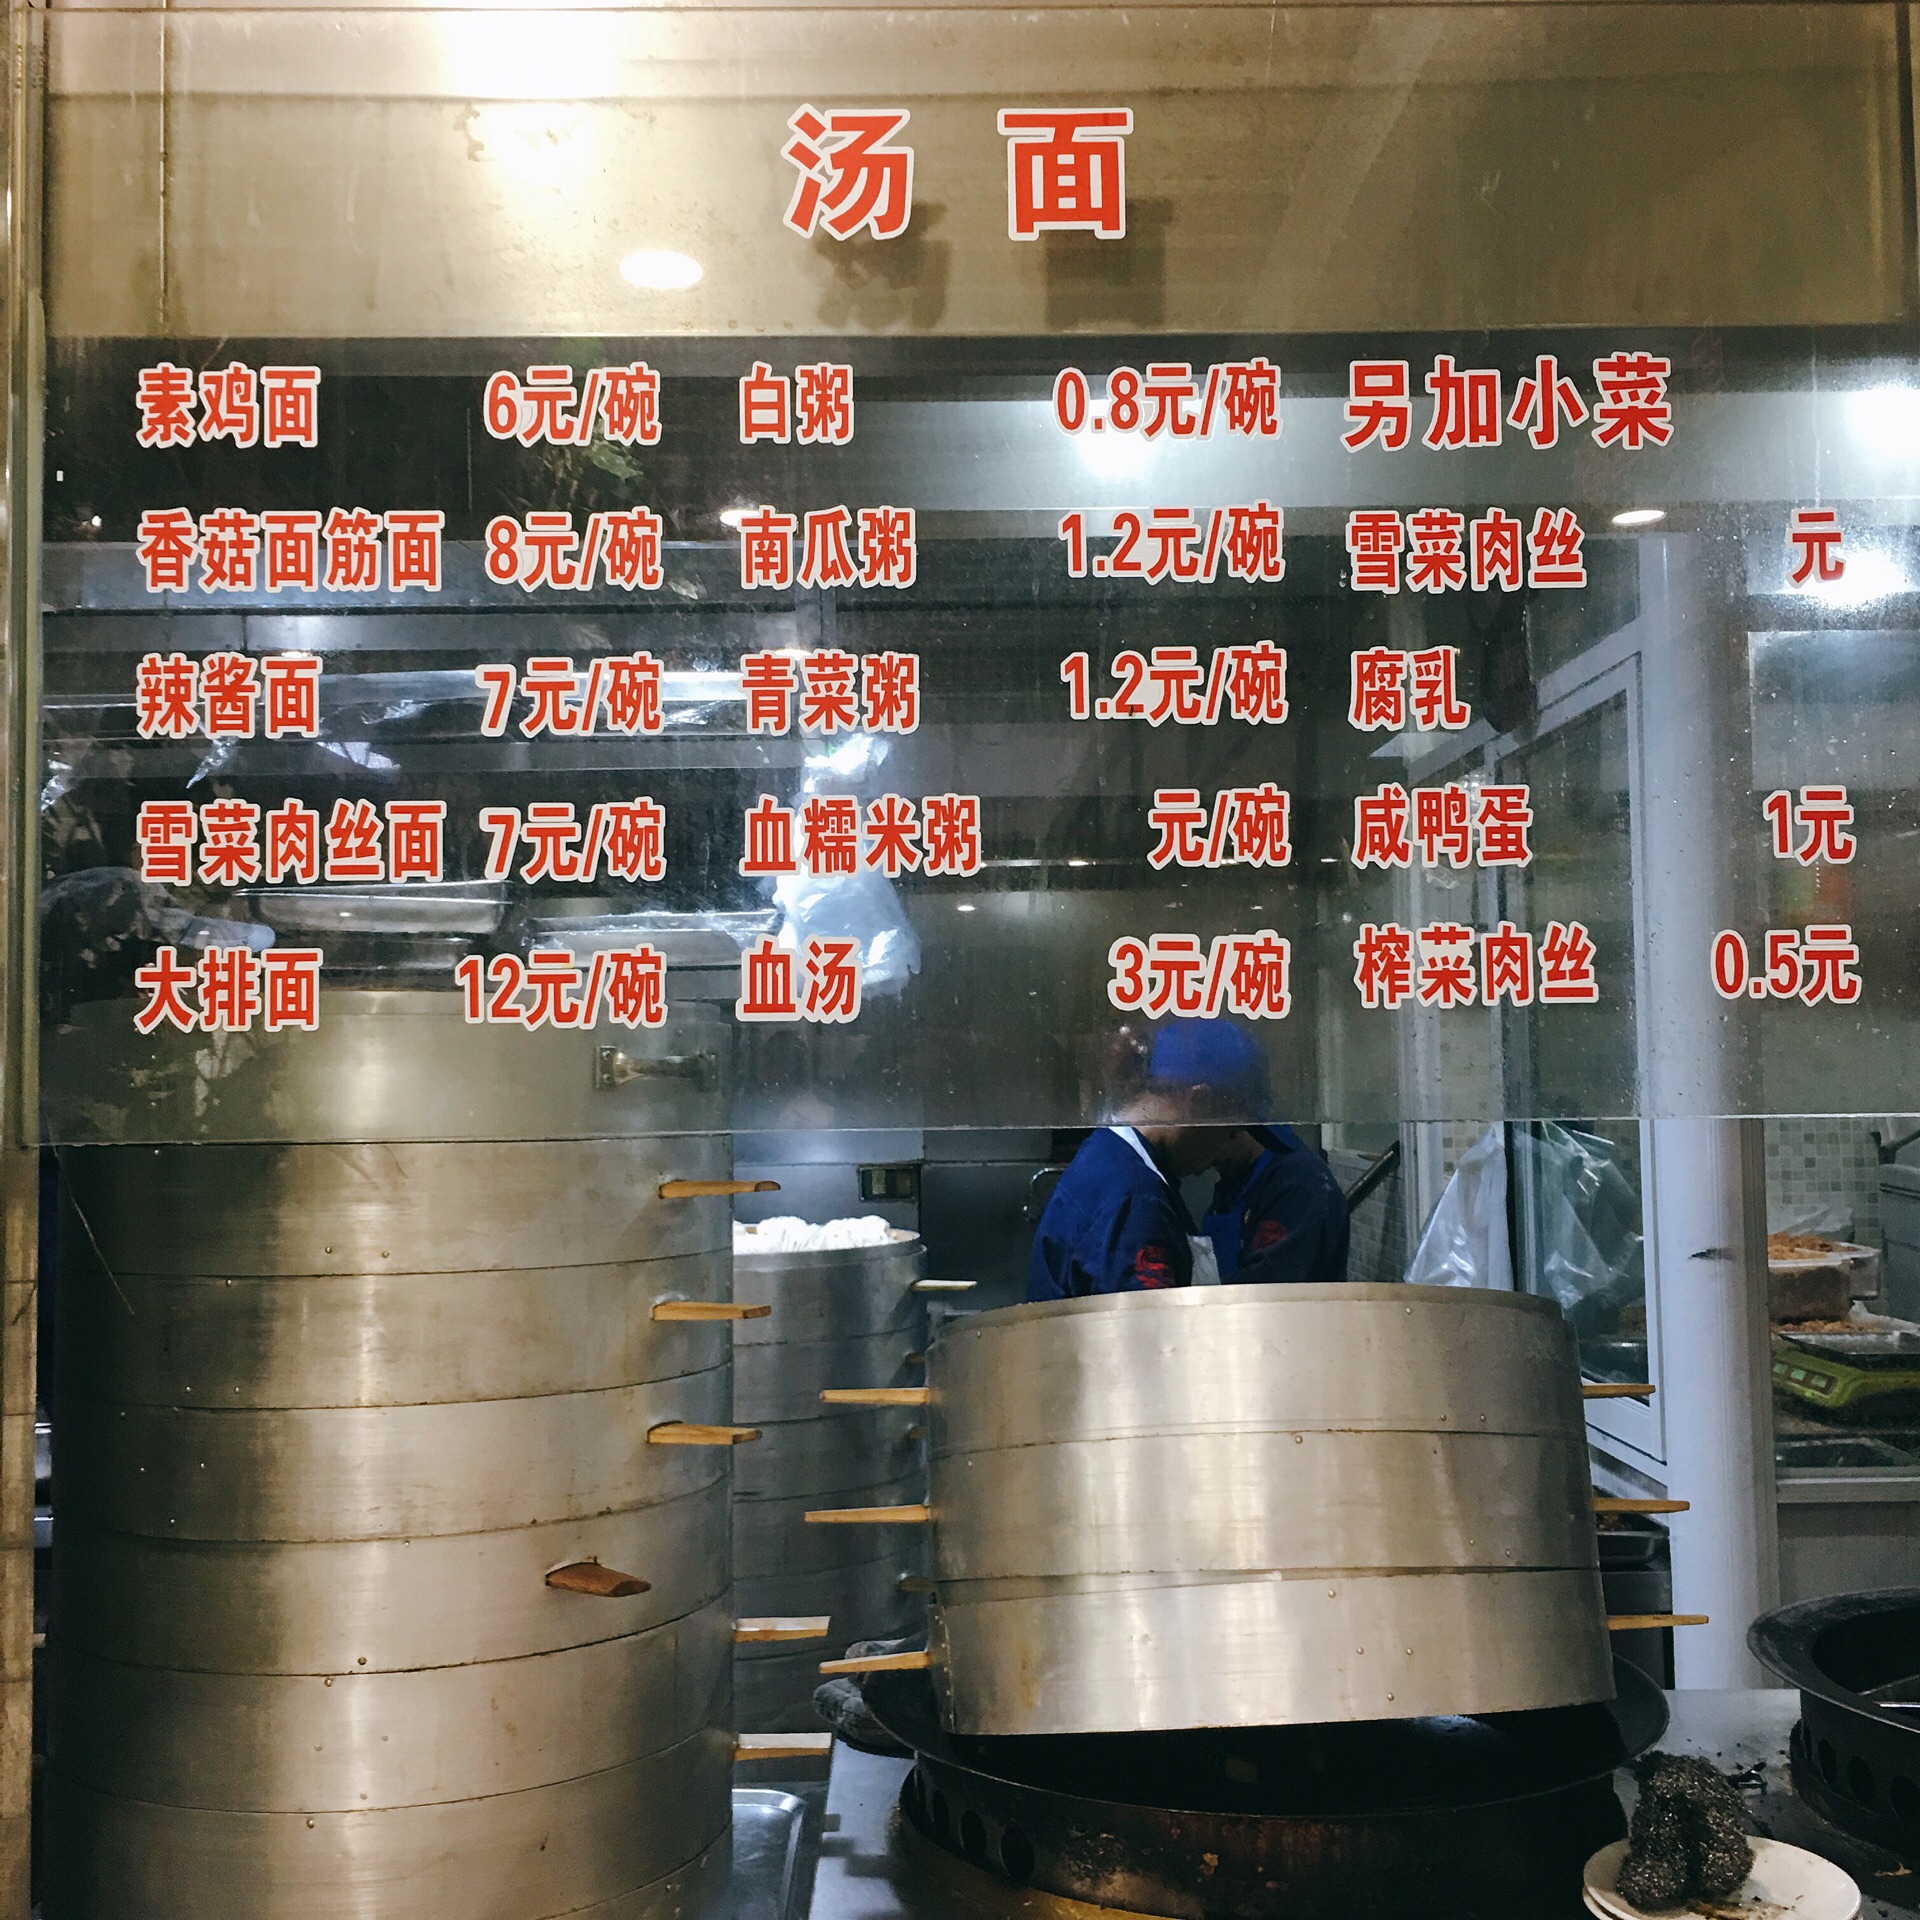 汤面
素鸡面 6元/碗 白粥 0.8元/碗 另加小菜
香菇面筋面 8元/碗 南瓜粥 1.2元/碗 雪菜肉丝 元
辣酱面 7元/碗 青菜粥 1.2元/碗 腐乳
雪菜肉丝面 7元/碗 血糯米粥 元/碗 咸鸭蛋 1元
大排面 12元/碗 血汤 3元/碗 榨菜肉丝 0.5元